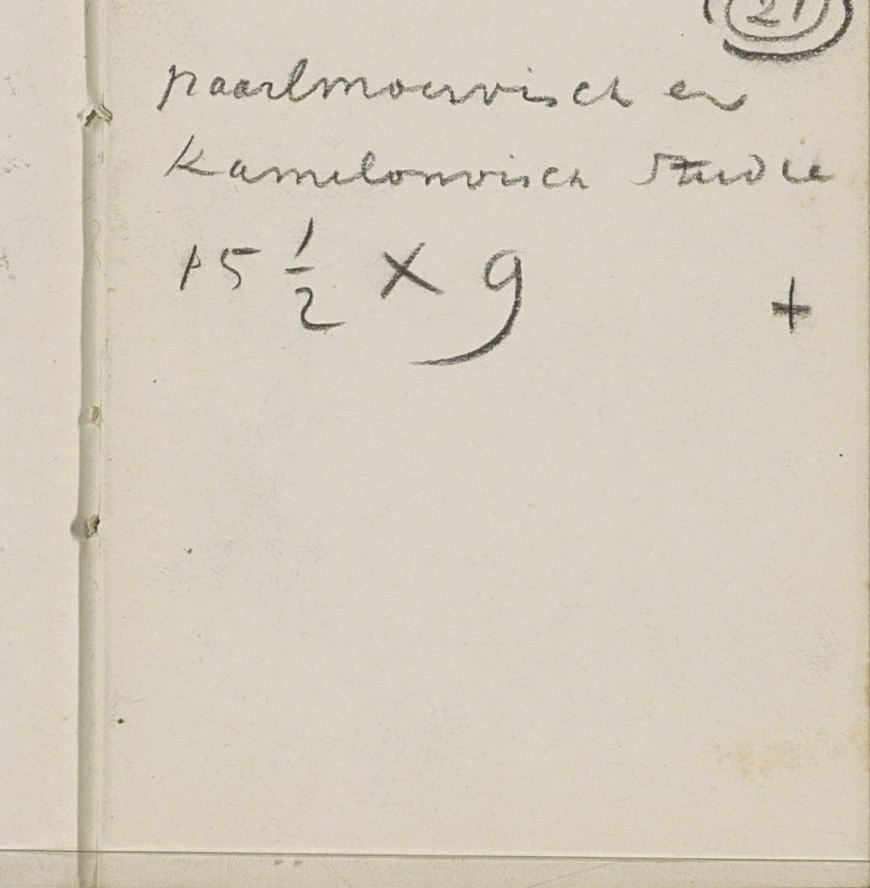 21
paarlmoervisch en
Kamelonvisch Studie
15 1/2 X 9
+